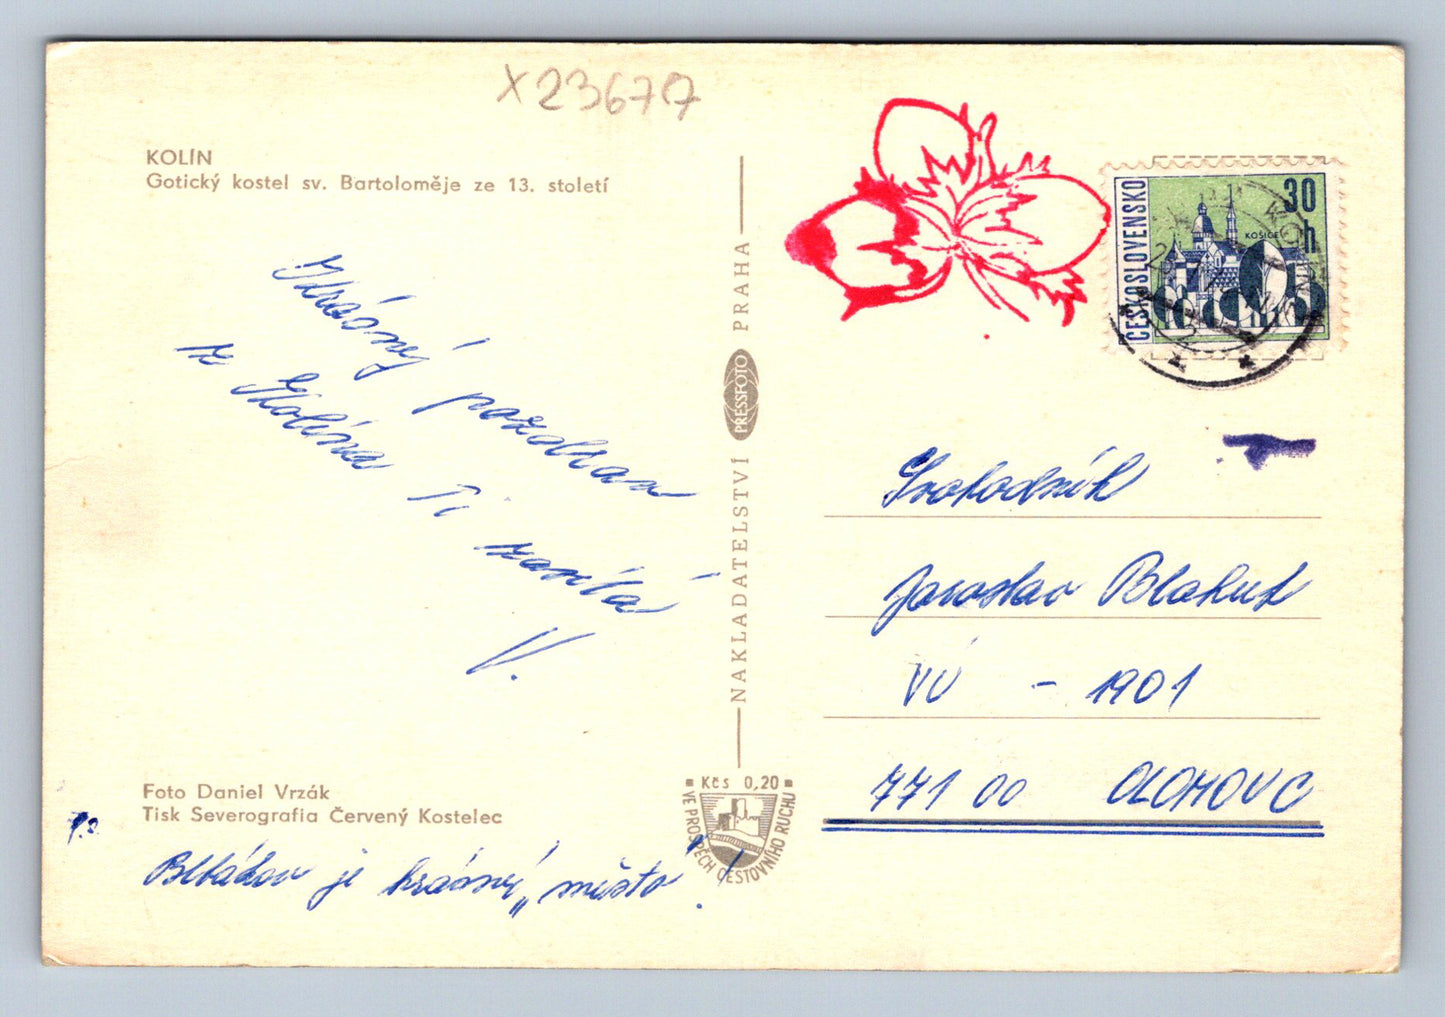 X23677
KOLÍN
Gotický kostel sv. Bartoloměje ze 13. století
Krásný pozdrav
z Kolína Ti
zasílá
V.
Foto Daniel Vrzák
Tisk Severografia Červený Kostelec
P.S.
je krásný „město!
NAKLADATELSTVÍ PRESSFOTO PRAHA
Kčs 0,20
VE PROSPĚCH CESTOVNÍHO RUCHU
ČESKOSLOVENSKO
30 h
KOŠICE
Svobodník
Jaroslav Blahut
VÚ - 1901
771 00 OLOMOUC